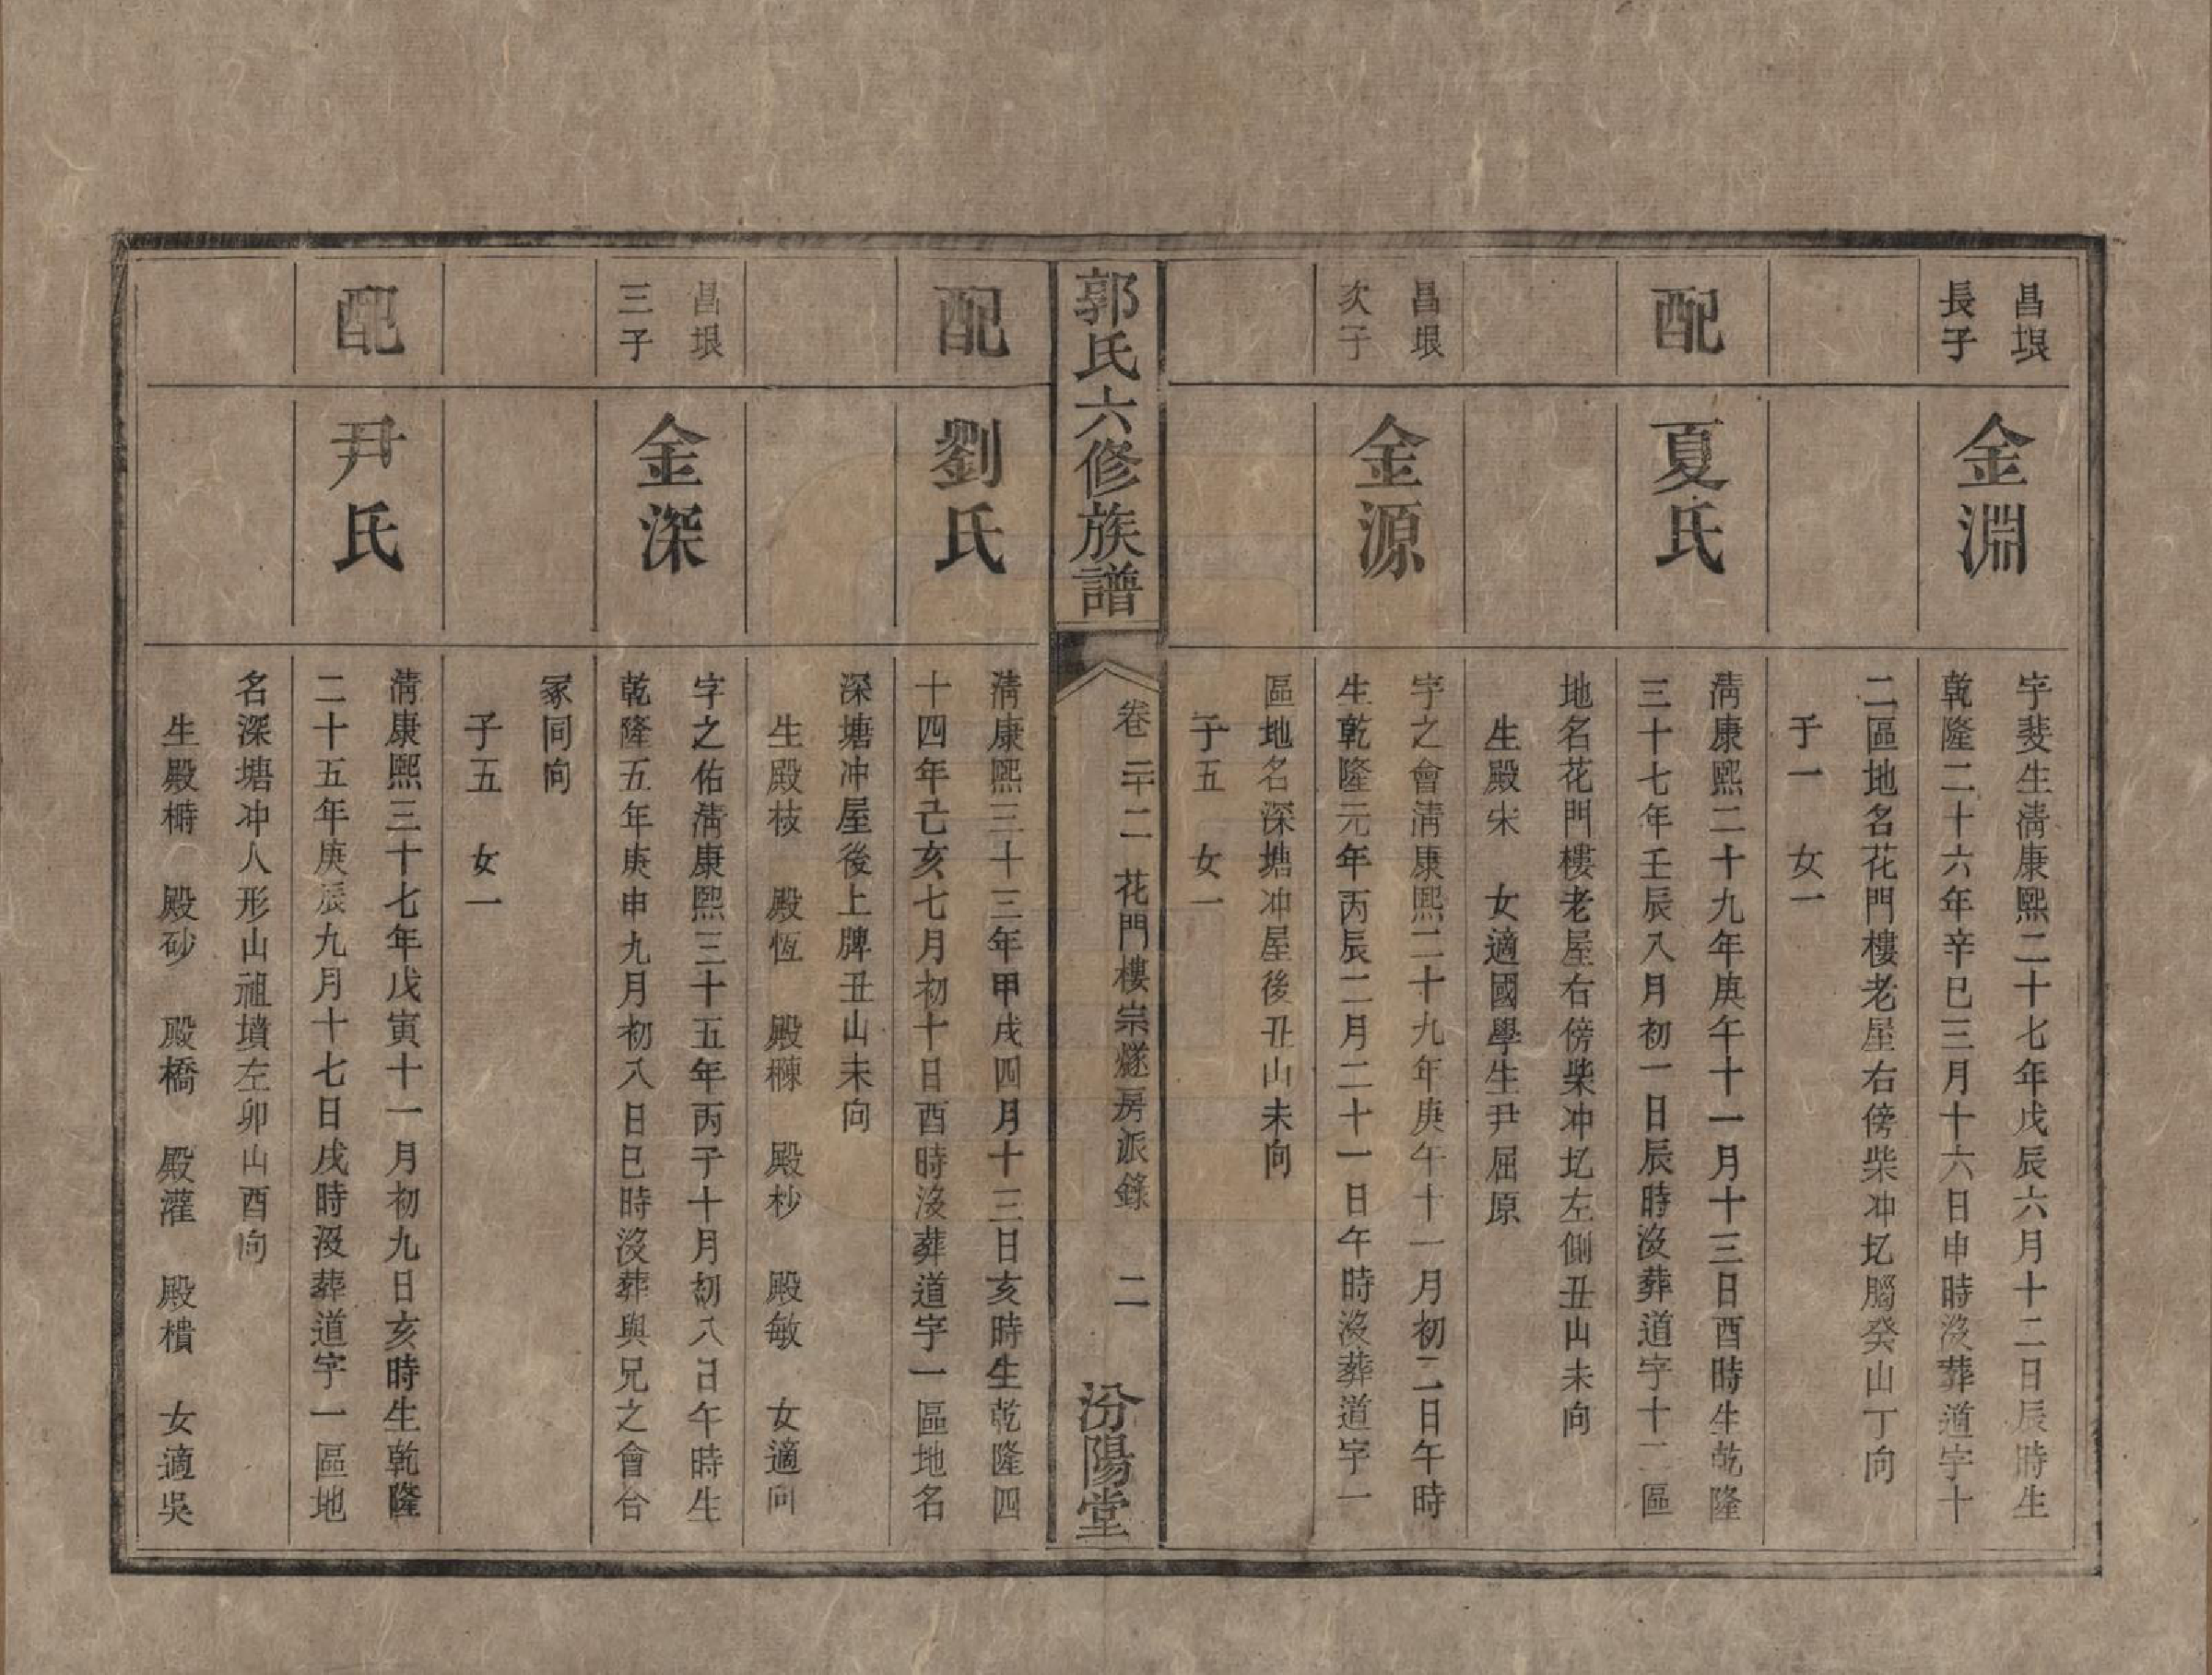 昌垠
長子
金淵
字斐生清康熙二十七年戊辰六月十二日辰時生
乾隆二十六年辛巳三月十六日申時沒葬道字十
二區地名花門樓老屋右傍柴冲圠腦癸山丁向
子一 女一
配
夏氏
清康熙二十九年庚午十一月十三日酉時生乾隆
三十七年壬辰八月初一日辰時沒葬道字十二區
地名花門樓老屋右傍柴冲圠左側丑山未向
生殿宋 女適國學生尹屈原
昌垠
次子
金源
字之會清康熙二十九年庚午十一月初二日午時
生乾隆元年丙辰二月二十一日午時沒葬道字一
區地名深塘冲屋後丑山未向
子五 女一
郭氏六修族譜
卷二十二 花門樓崇燧房派錄 二
汾陽堂
配
劉氏
清康熙三十三年甲戌四月十三日亥時生乾隆四
十四年己亥七月初十日酉時沒葬道字一區地名
深塘冲屋後上牌丑山未向
生殿枝 殿恆 殿棟 殿杪 殿敏 女適向
昌垠
三子
金深
字之佑清康熙三十五年丙子十月初八日午時生
乾隆五年庚申九月初八日巳時沒葬與兄之會合
冢同向
子五 女一
配
尹氏
清康熙三十七年戊寅十一月初九日亥時生乾隆
二十五年庚辰九月十七日戌時沒葬道字一區地
名深塘冲人形山祖墳左卯山酉向
生殿榯 殿砂 殿橋 殿灌 殿樻 女適吳